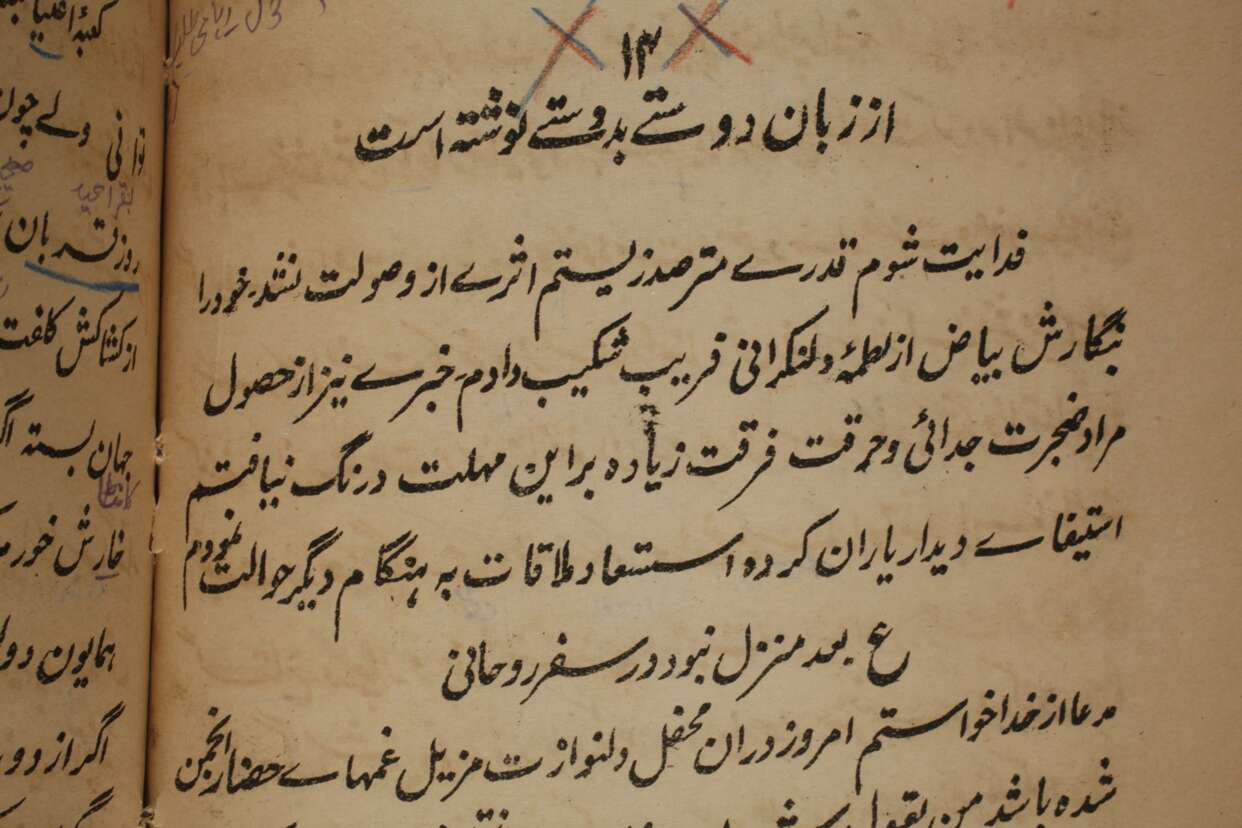 ۱۴
از زبان دوستے بدوستے نوشته است
فدایت شوم قدرے مترصد زیستم اثرے از وصولت نشد۔ خود را
بنگارش بیاض از لطمۂ دلنگرانی فریب شکیب دادم۔ خبرے نیز از حصول
مراد ضجرت جدائی و حرقت فرقت زیاده بر این مهلت درنگ نیافتم
استیفاے دیدار یاران کرده استسعاد ملاقات به هنگام دیگر حوالت نمودم
ع بعد منزل نبود در سفر روحانی
مدعا از خدا خواستم امروز دران محفل دلنوازت مزیل غمهاے حضار انجمن
شده باشد من
کعبۂ
توانی ولے چون
روز قربان
از کشاکش کلفت
جهان بسته
خارش خور
همایون
اگر از دور